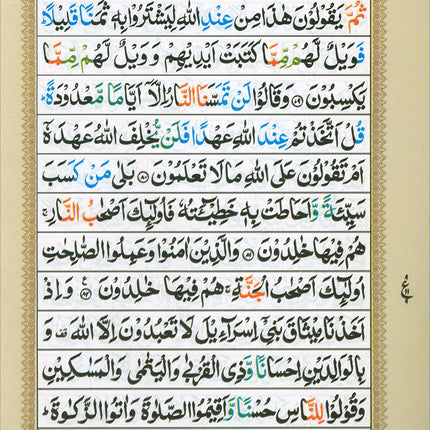 ثُمَّ يَقُوْلُوْنَ هٰذَا مِنْ عِنْدِ اللّٰهِ لِيَشْتَرُوْا بِهٖ ثَمَنًا قَلِيْلًا ؕ
فَوَيْلٌ لَّهُمْ مِّمَّا كَتَبَتْ اَيْدِيْهِمْ وَ وَيْلٌ لَّهُمْ مِّمَّا
يَكْسِبُوْنَ ﴿۷۹﴾ وَقَالُوْا لَنْ تَمَسَّنَا النَّارُ اِلَّاۤ اَيَّامًا مَّعْدُوْدَةً ؕ
قُلْ اَتَّخَذْتُمْ عِنْدَ اللّٰهِ عَهْدًا فَلَنْ يُّخْلِفَ اللّٰهُ عَهْدَهٗۤ
اَمْ تَقُوْلُوْنَ عَلَى اللّٰهِ مَا لَا تَعْلَمُوْنَ ﴿۸۰﴾ بَلٰى مَنْ كَسَبَ
سَيِّئَةً وَّاَحَاطَتْ بِهٖ خَطِيْٓـَٔتُهٗ فَاُولٰٓئِكَ اَصْحٰبُ النَّارِ ۚ
هُمْ فِيْهَا خٰلِدُوْنَ ﴿۸۱﴾ وَالَّذِيْنَ اٰمَنُوْا وَعَمِلُوا الصّٰلِحٰتِ
اُولٰٓئِكَ اَصْحٰبُ الْجَنَّةِ ۚ هُمْ فِيْهَا خٰلِدُوْنَ ﴿۸۲﴾ وَاِذْ
اَخَذْنَا مِيْثَاقَ بَنِيْۤ اِسْرَآءِيْلَ لَا تَعْبُدُوْنَ اِلَّا اللّٰهَ ۫ وَ
بِالْوَالِدَيْنِ اِحْسَانًا وَّذِي الْقُرْبٰى وَالْيَتٰمٰى وَالْمَسٰكِيْنِ
وَقُوْلُوْا لِلنَّاسِ حُسْنًا وَّاَقِيْمُوا الصَّلٰوةَ وَاٰتُوا الزَّكٰوةَ ؕ